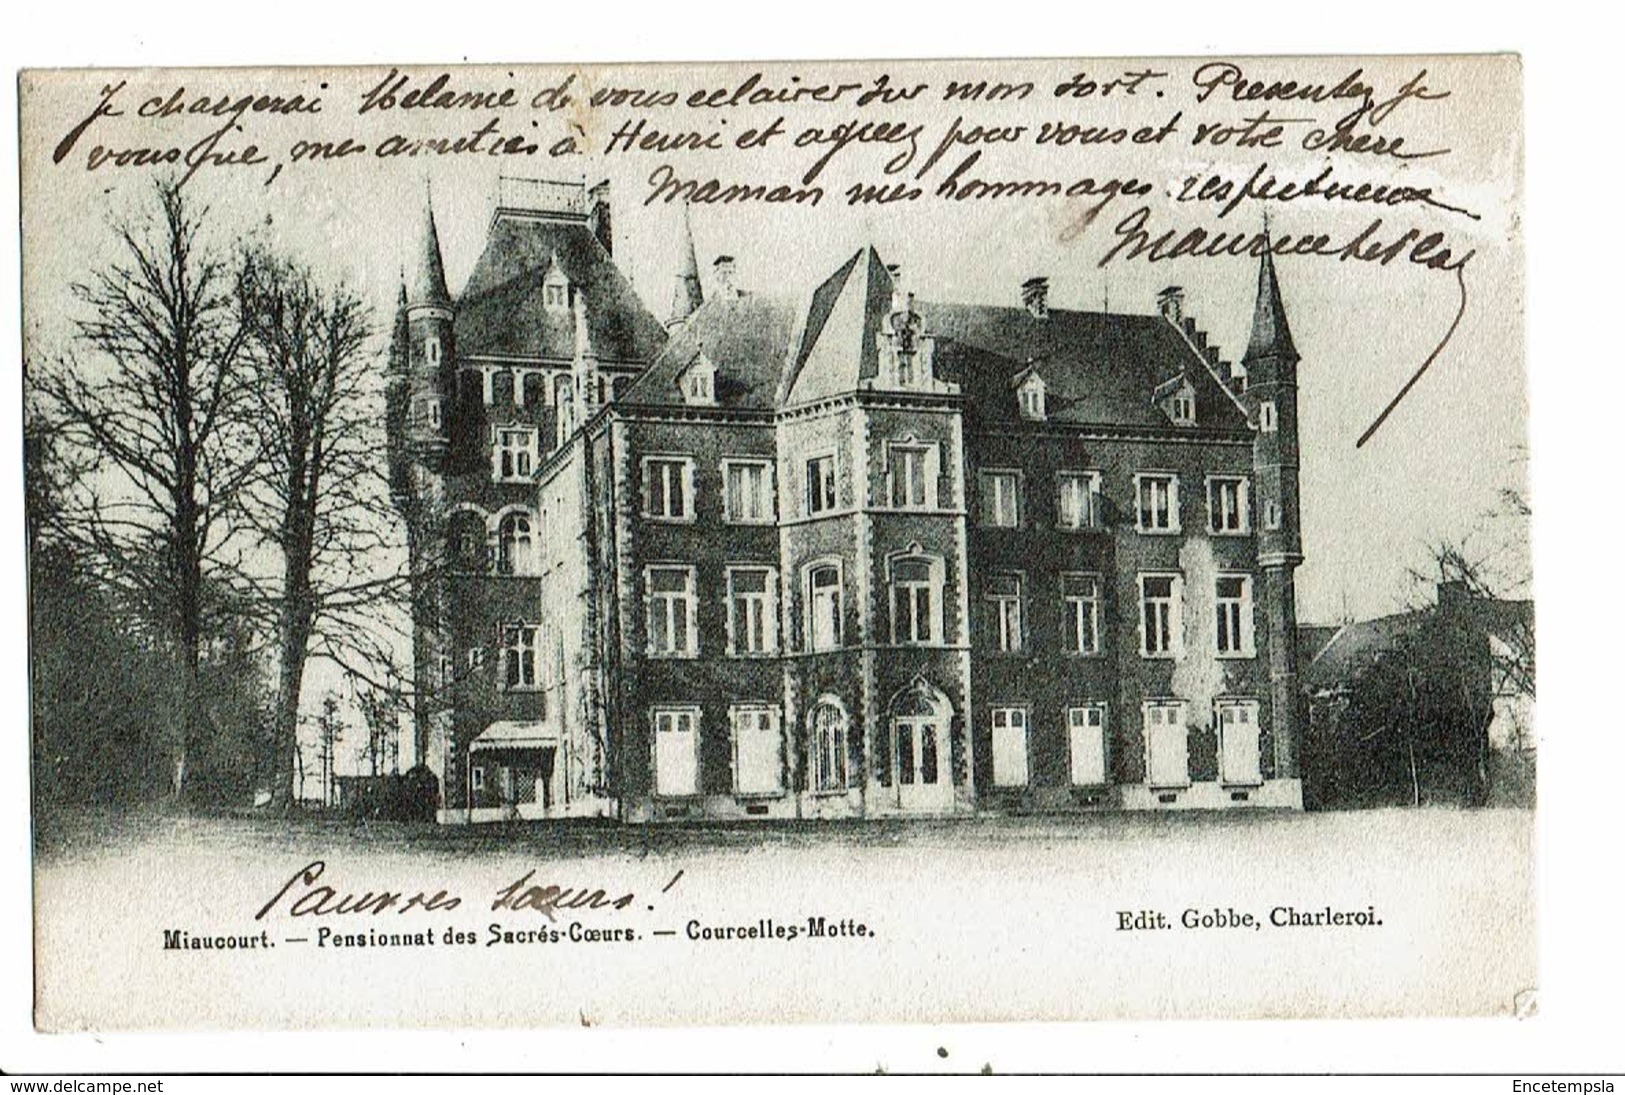 Je chargerai Mélanie de vous eclairer sur mon sort. Presentez, je
vous prie, mes amitiés à Henri et agreez pour vous et votre chere
Maman mes hommages respectueux
Maurice
Pauvres sœurs!
Miaucourt. — Pensionnat des Sacrés-Cœurs. — Courcelles-Motte.
Edit. Gobbe, Charleroi.
www.delcampe.net
Encetempsla